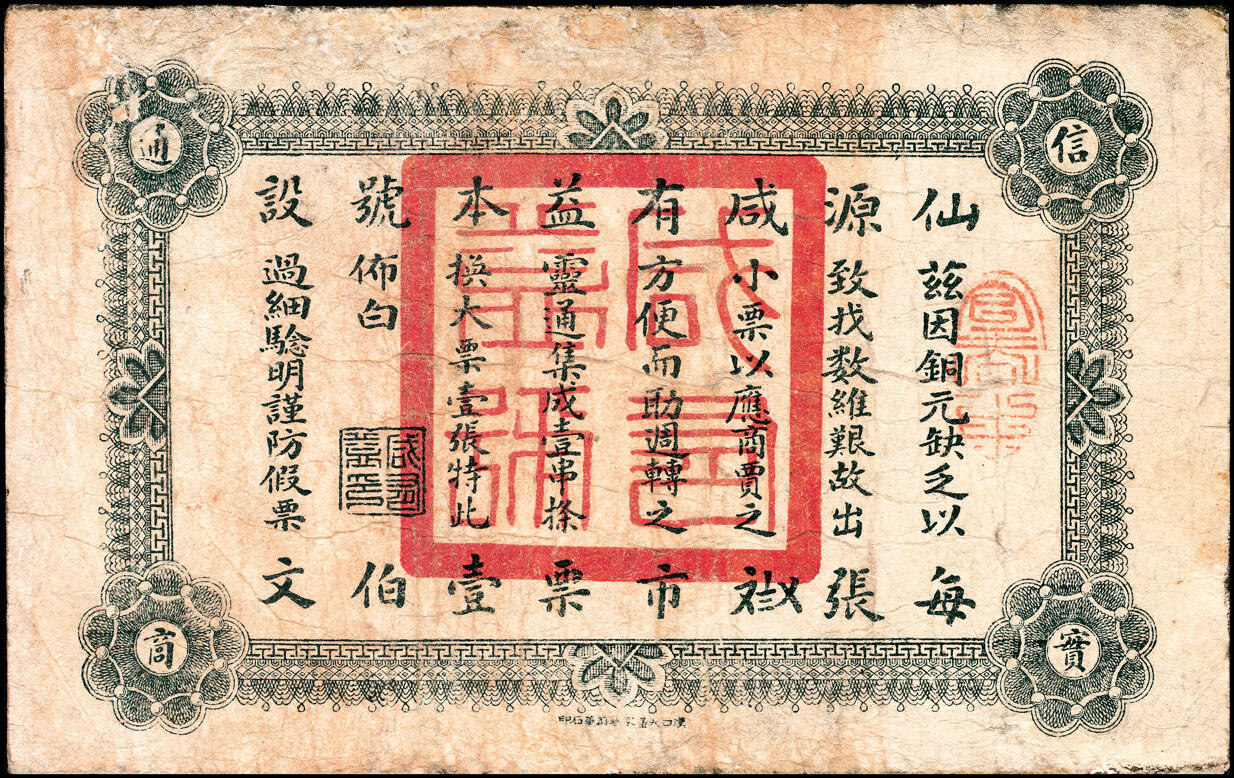 信
實
通
商
仙 茲因銅元缺乏以 每
源 致找数維艱故出 張
咸 小票以應商賈之
有 方便而助週轉之 市
益 靈通集成壹串 票
本 換大票壹張特此 壹
號 佈白 伯
設 過細驗明謹防假票 文